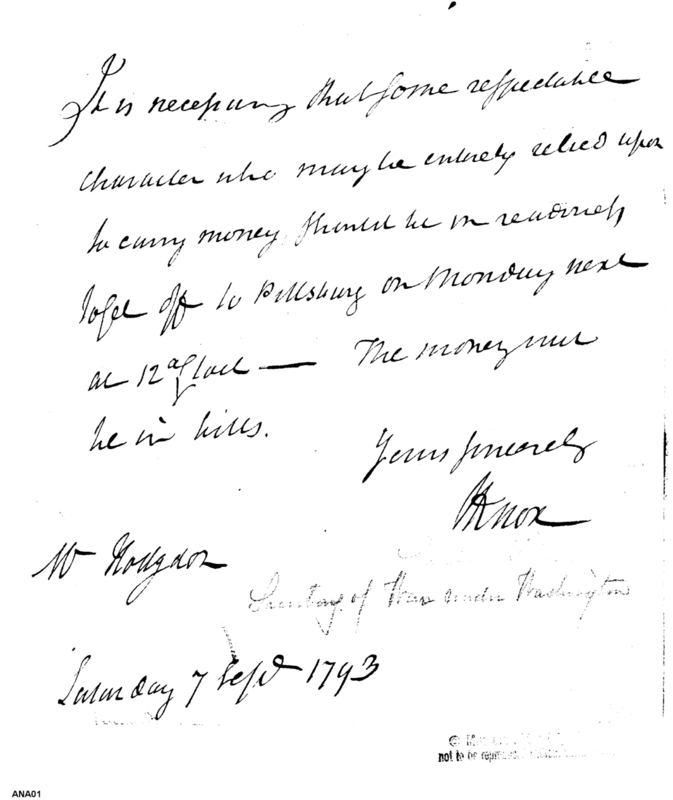 It is necessary that some respectable
character who may be entirely relied upon
to carry money, should be in readiness
to set off to Pittsburg on Monday next
at 12 oClock — The money
be in bills.
Yours sincerely
HKnox
Mr Hodgdon
Secretary of War under Washington
Saturday 7 Sept 1793
not to be
ANA01